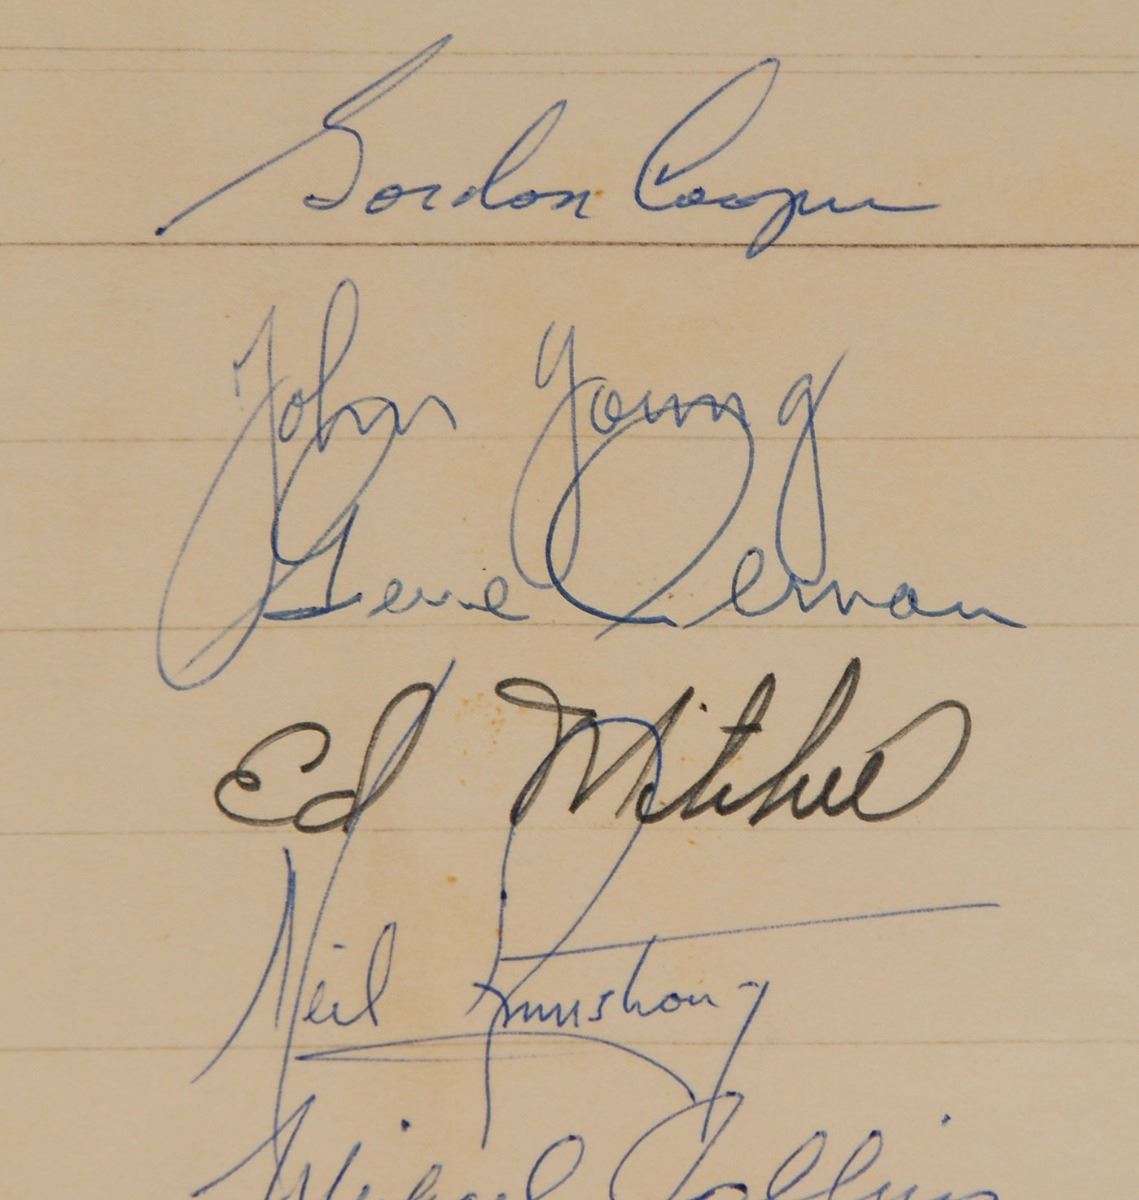 Gordon Cooper
John Young
Gene Cernan
Ed Mitchell
Neil Armstrong
Michael Collins